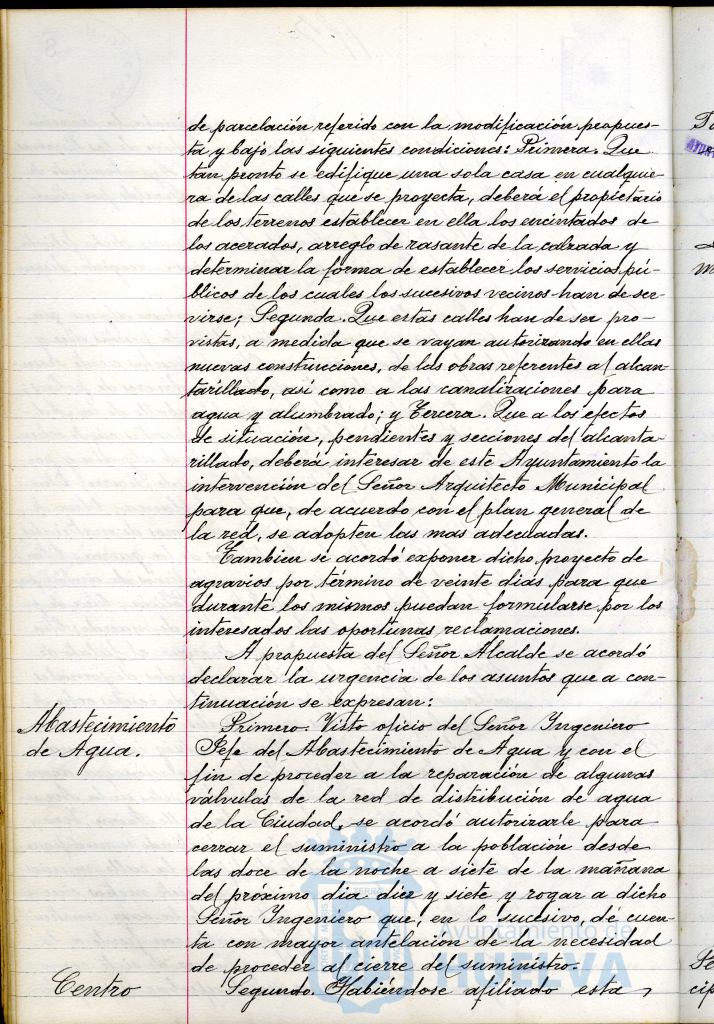 de parcelación referido con la modificación propues-
ta y bajo las siguientes condiciones: Primera. Que
tan pronto se edifique una sola casa en cualquie-
ra de las calles que se proyecta, deberá el propietario
de los terrenos establecer en ella los encintados de
los acerados, arreglo de rasante de la calzada y
determinar la forma de establecer los servicios pú-
blicos de los cuales los sucesivos vecinos han de ser-
virse; Segunda. Que estas calles han de ser pro-
vistas, a medida que se vayan autorizando en ellas
nuevas construcciones, de las obras referentes al alcan-
tarillado, así como a las canalizaciones para
agua y alumbrado; y Tercera. Que a los efectos
de situación, pendientes y secciones del alcanta-
rillado, deberá interesar de este Ayuntamiento la
intervención del Señor Arquitecto Municipal
para que, de acuerdo con el plan general de
la red, se adopten las mas adecuadas.
Tambien se acordó exponer dicho proyecto de
agravios por término de veinte dias para que
durante los mismos puedan formularse por los
interesados las oportunas reclamaciones.
A propuesta del Señor Alcalde se acordó
declarar la urgencia de los asuntos que a con-
tinuación se expresan:
Abastecimiento
de Agua.
Primero. Visto oficio del Señor Ingeniero
Jefe del Abastecimiento de Agua y con el
fin de proceder a la reparación de algunas
válvulas de la red de distribución de agua
de la Ciudad, se acordó autorizarle para
cerrar el suministro a la población desde
las doce de la noche a siete de la mañana
del próximo dia diez y siete y rogar a dicho
Señor Ingeniero que, en lo sucesivo, dé cuen-
ta con mayor antelación de la necesidad
de proceder al cierre del suministro.
Centro
Segundo. Habiéndose afiliado esta
Ayuntamiento de
HUELVA